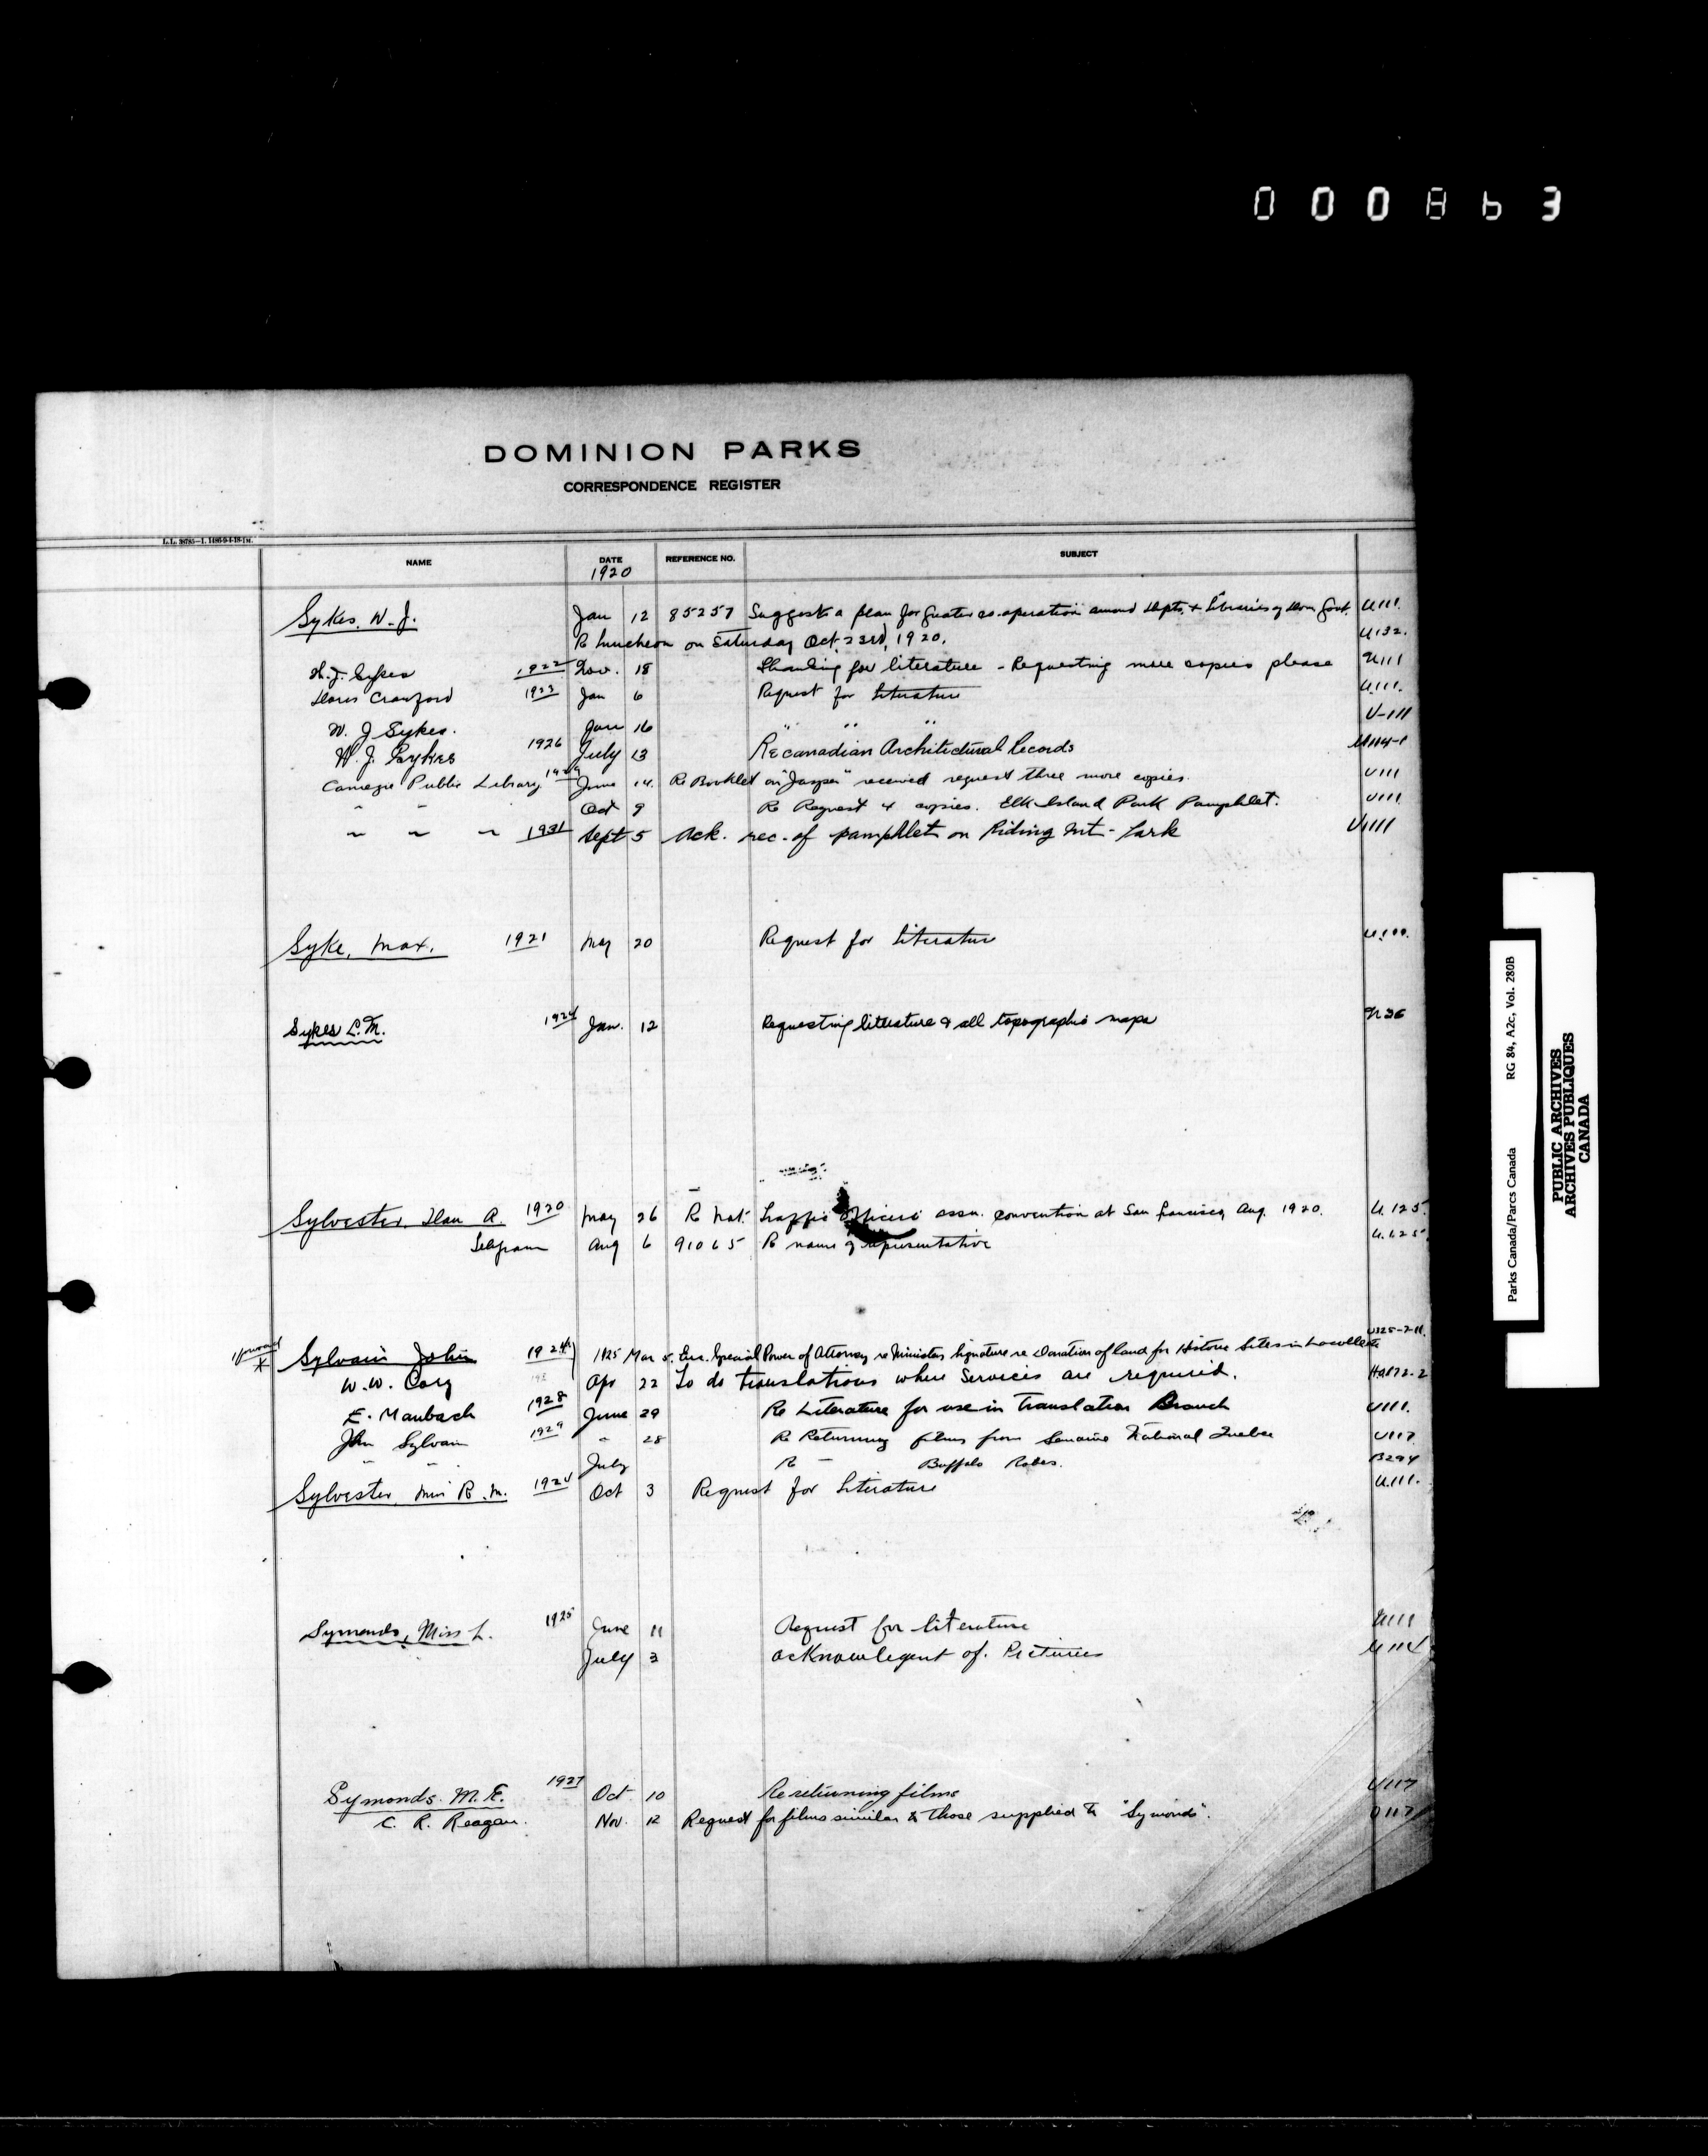 000863
DOMINION PARKS
CORRESPONDENCE REGISTER
L.L. 38785—L 1486-9-4-18-1M.
NAME DATE REFERENCE NO. SUBJECT
1920
Sykes, W. J. Jan 12 85257 Suggests a plan for greater co-operation among Depts. & Libraries of Dom. Govt. U111.
Re Luncheon on Saturday Oct. 23rd, 1920. U132.
W. J. Sykes 1922 Nov. 18 Thanking for literature - Requesting more copies please U111
Crawford 1923 Jan 6 Request for Literature U111.
W. J. Sykes. Jan 16 " " " U-111
W. J. Sykes 1926 July 13 Re Canadian Architectural Records U114-1
Carnegie Public Library 1929 June 14. Re Booklet on "Jasper" received request three more copies. U111
" " Oct 9 Re Request 4 copies. Elk Island Park Pamphlet. U111
" " " 1931 Sept 5 Ack. rec. of pamphlet on Riding Mt. Park U111
Syke, Max. 1921 May 20 Request for Literature
Sykes L.M. 1924 Jan. 12 Requesting literature & all topographic maps U36
Sylvester, Dan A. 1920 May 26 Re Nat. Traffic Officers assn. convention at San Francisco, Aug. 1920. U.125.
Telegram Aug 6 91065 Re name of representative U.125
Sylvain John 1924 1925 Mar 5. Enc. Special Power of Attorney re Ministers Signature re Donation of land for Historic Sites in Lacolle U325-2-11.
W. W. Cory Apr 22 To do translations where services are required. H9872-2
E. Maubach 1928 June 29 Re Literature for use in Translation Branch U111.
John Sylvain 1929 " 28 Re Returning films from National Quebec U117
" " July Re - Buffalo Robes. B294
Sylvester, Miss R. M. 1924 Oct 3 Request for Literature U.111.
Symonds, Miss L. 1925 June 11 Request for literature U111
July 3 acknowlegent of. Pictures U114
Symonds. M. E. 1927 Oct 10 Re returning films U117
C. R. Reagan. Nov. 12 Request for films similar to those supplied to "Symonds". U117
Parks Canada/Parcs Canada RG 84, A2c, Vol. 280B
PUBLIC ARCHIVES
ARCHIVES PUBLIQUES
CANADA